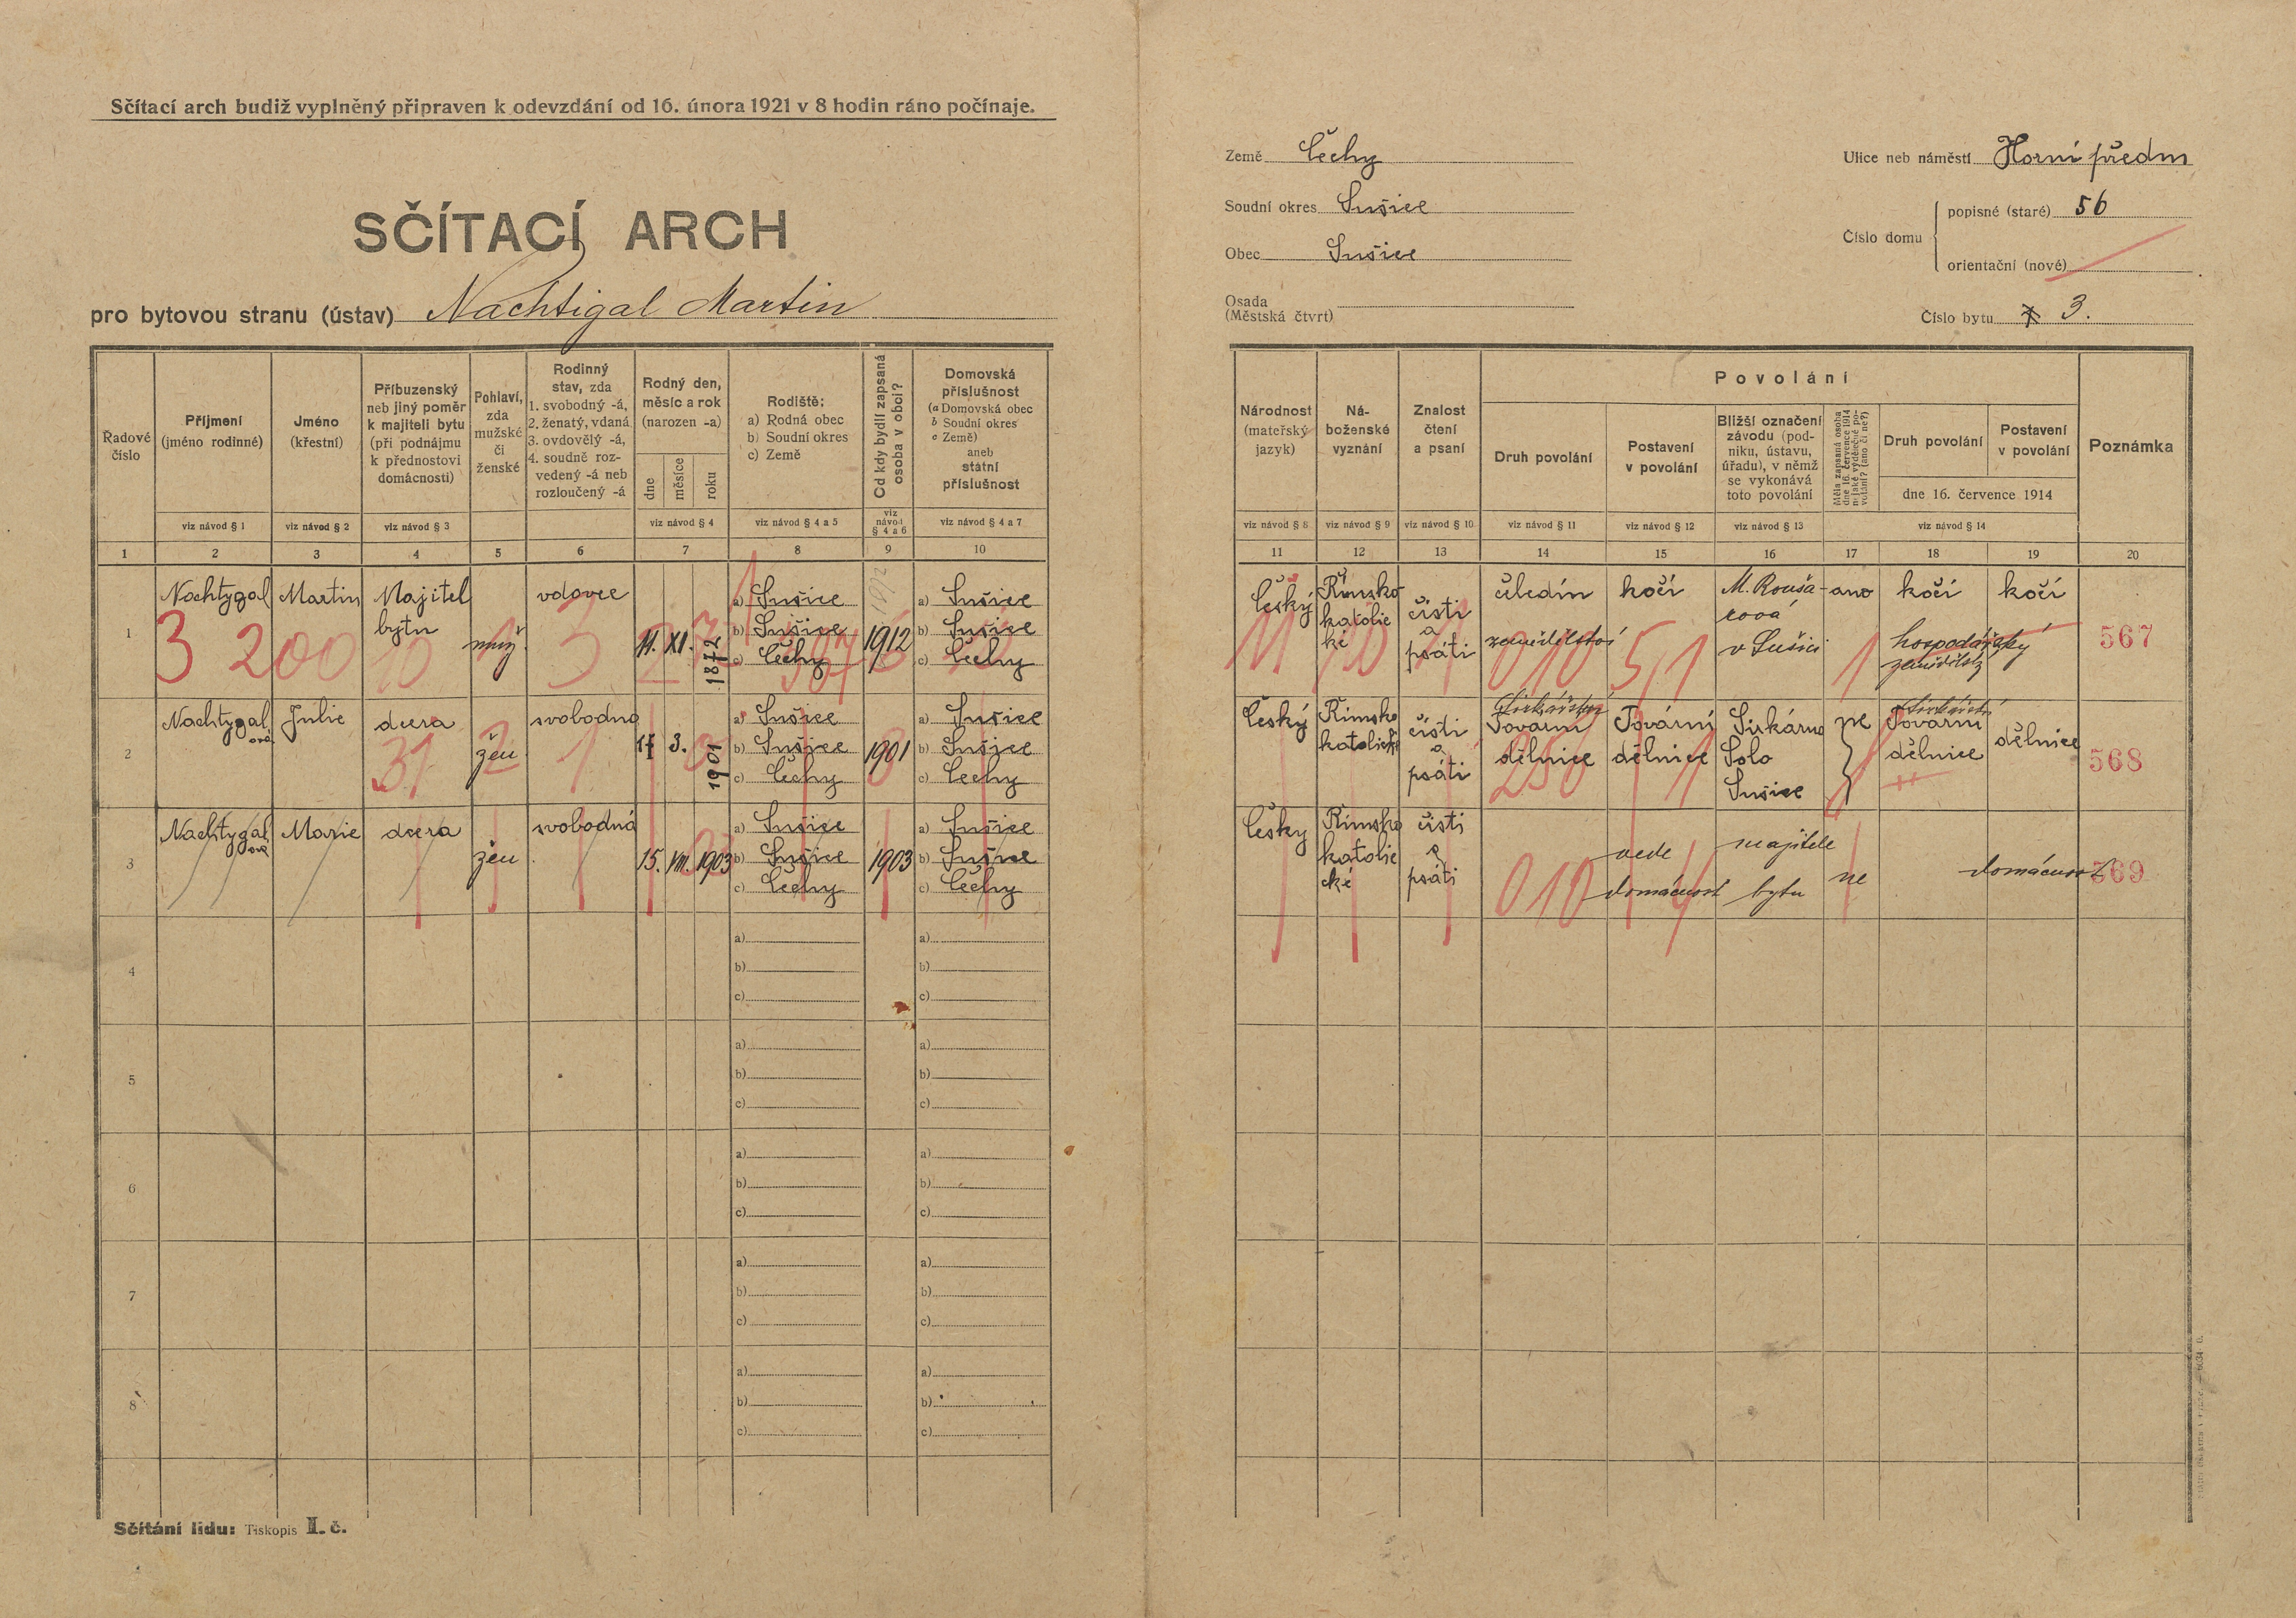 Sčítací arch budiž vyplněný připraven k odevzdání od 16. února 1921 v 8 hodin ráno počínaje.
SČÍTACÍ ARCH
pro bytovou stranu (ústav) Nachtigal Martin
Země Čechy
Soudní okres Sušice
Obec Sušice
Osada
(Městská čtvrt)
Ulice neb náměstí Horní předm
Číslo domu
popisné (staré) 56
orientační (nové)
Číslo bytu 3.
Řadové číslo
Příjmení (jméno rodinné)
Jméno (křestní)
Příbuzenský neb jiný poměr k majiteli bytu (při podnájmu k přednostovi domácnosti)
Pohlaví, zda mužské či ženské
Rodinný stav, zda 1. svobodný -á, 2. ženatý, vdaná 3. ovdovělý -á, 4. soudně rozvedený -á neb rozloučený -á
Rodný den, měsíc a rok (narozen -a)
dne měsíce roku
Rodiště: a) Rodná obec b) Soudní okres c) Země
Od kdy bydlí zapsaná osoba v obci?
Domovská příslušnost (a Domovská obec b Soudní okres c Země) aneb státní příslušnost
viz návod § 1 viz návod § 2 viz návod § 3 viz návod § 4 viz návod § 4 a 5 viz návod § 4 a 6 viz návod § 4 a 7
1 2 3 4 5 6 7 8 9 10
Národnost (mateřský jazyk)
Náboženské vyznání
Znalost čtení a psaní
Povolání
Druh povolání
Postavení v povolání
Bližší označení závodu (podniku, ústavu, úřadu), v němž se vykonává toto povolání
Měla zapsaná osoba dne 16. července 1914 nějaké výdělečné povolání? (ano či ne?)
Druh povolání
Postavení v povolání
dne 16. července 1914
Poznámka
viz návod § 8 viz návod § 9 viz návod § 10 viz návod § 11 viz návod § 12 viz návod § 13 viz návod § 14
11 12 13 14 15 16 17 18 19 20
1 Nachtygal Martin Majitel bytu muž. vdovec 11. XI. 1872 a) Sušice b) Sušice c) Čechy 1912 a) Sušice b) Sušice c) Čechy
3 200 10
český Římsko katolické čisti a psáti čeledín zemědělství kočí v Sušici ano kočí hospodářský zemědělský kočí 567
11 10 010 51 1
2 Nachtygalová Julie dcera žen svobodna 17 3. 1901 a) Sušice b) Sušice c) Čechy 1901 a) Sušice b) Sušice c) Čechy
31 2 1
Český Římsko katolické čisti a psáti Tovární dělnice Tovární dělnice Sirkárna Solo Sušice ne Tovární dělnice dělnice 568
250
3 Nachtygalová Marie dcera žen svobodná 15. VIII. 1903 a) Sušice b) Sušice c) Čechy 1903 a) Sušice b) Sušice c) Čechy
Česky Římsko katolické čisti a psáti vede domácnost majitele bytu ne domácnost 569
010
4 a) b) c) a) b) c)
5 a) b) c) a) b) c)
6 a) b) c) a) b) c)
7 a) b) c) a) b) c)
8 a) b) c) a) b) c)
Sčítání lidu: Tiskopis II. č.